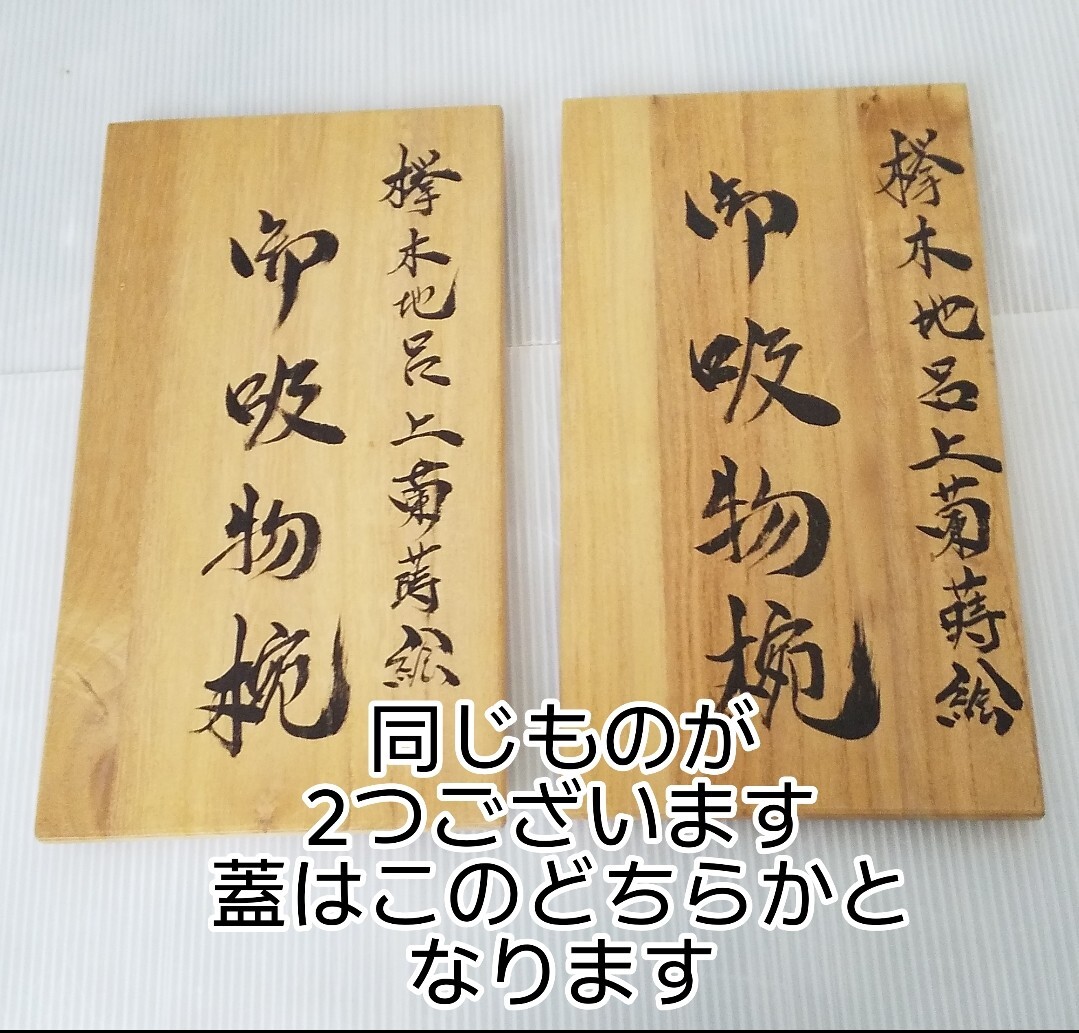 欅木地呂上菊蒔絵
御吸物椀
欅木地呂上菊蒔絵
御吸物椀
同じものが
2つございます
蓋はこのどちらかと
なります